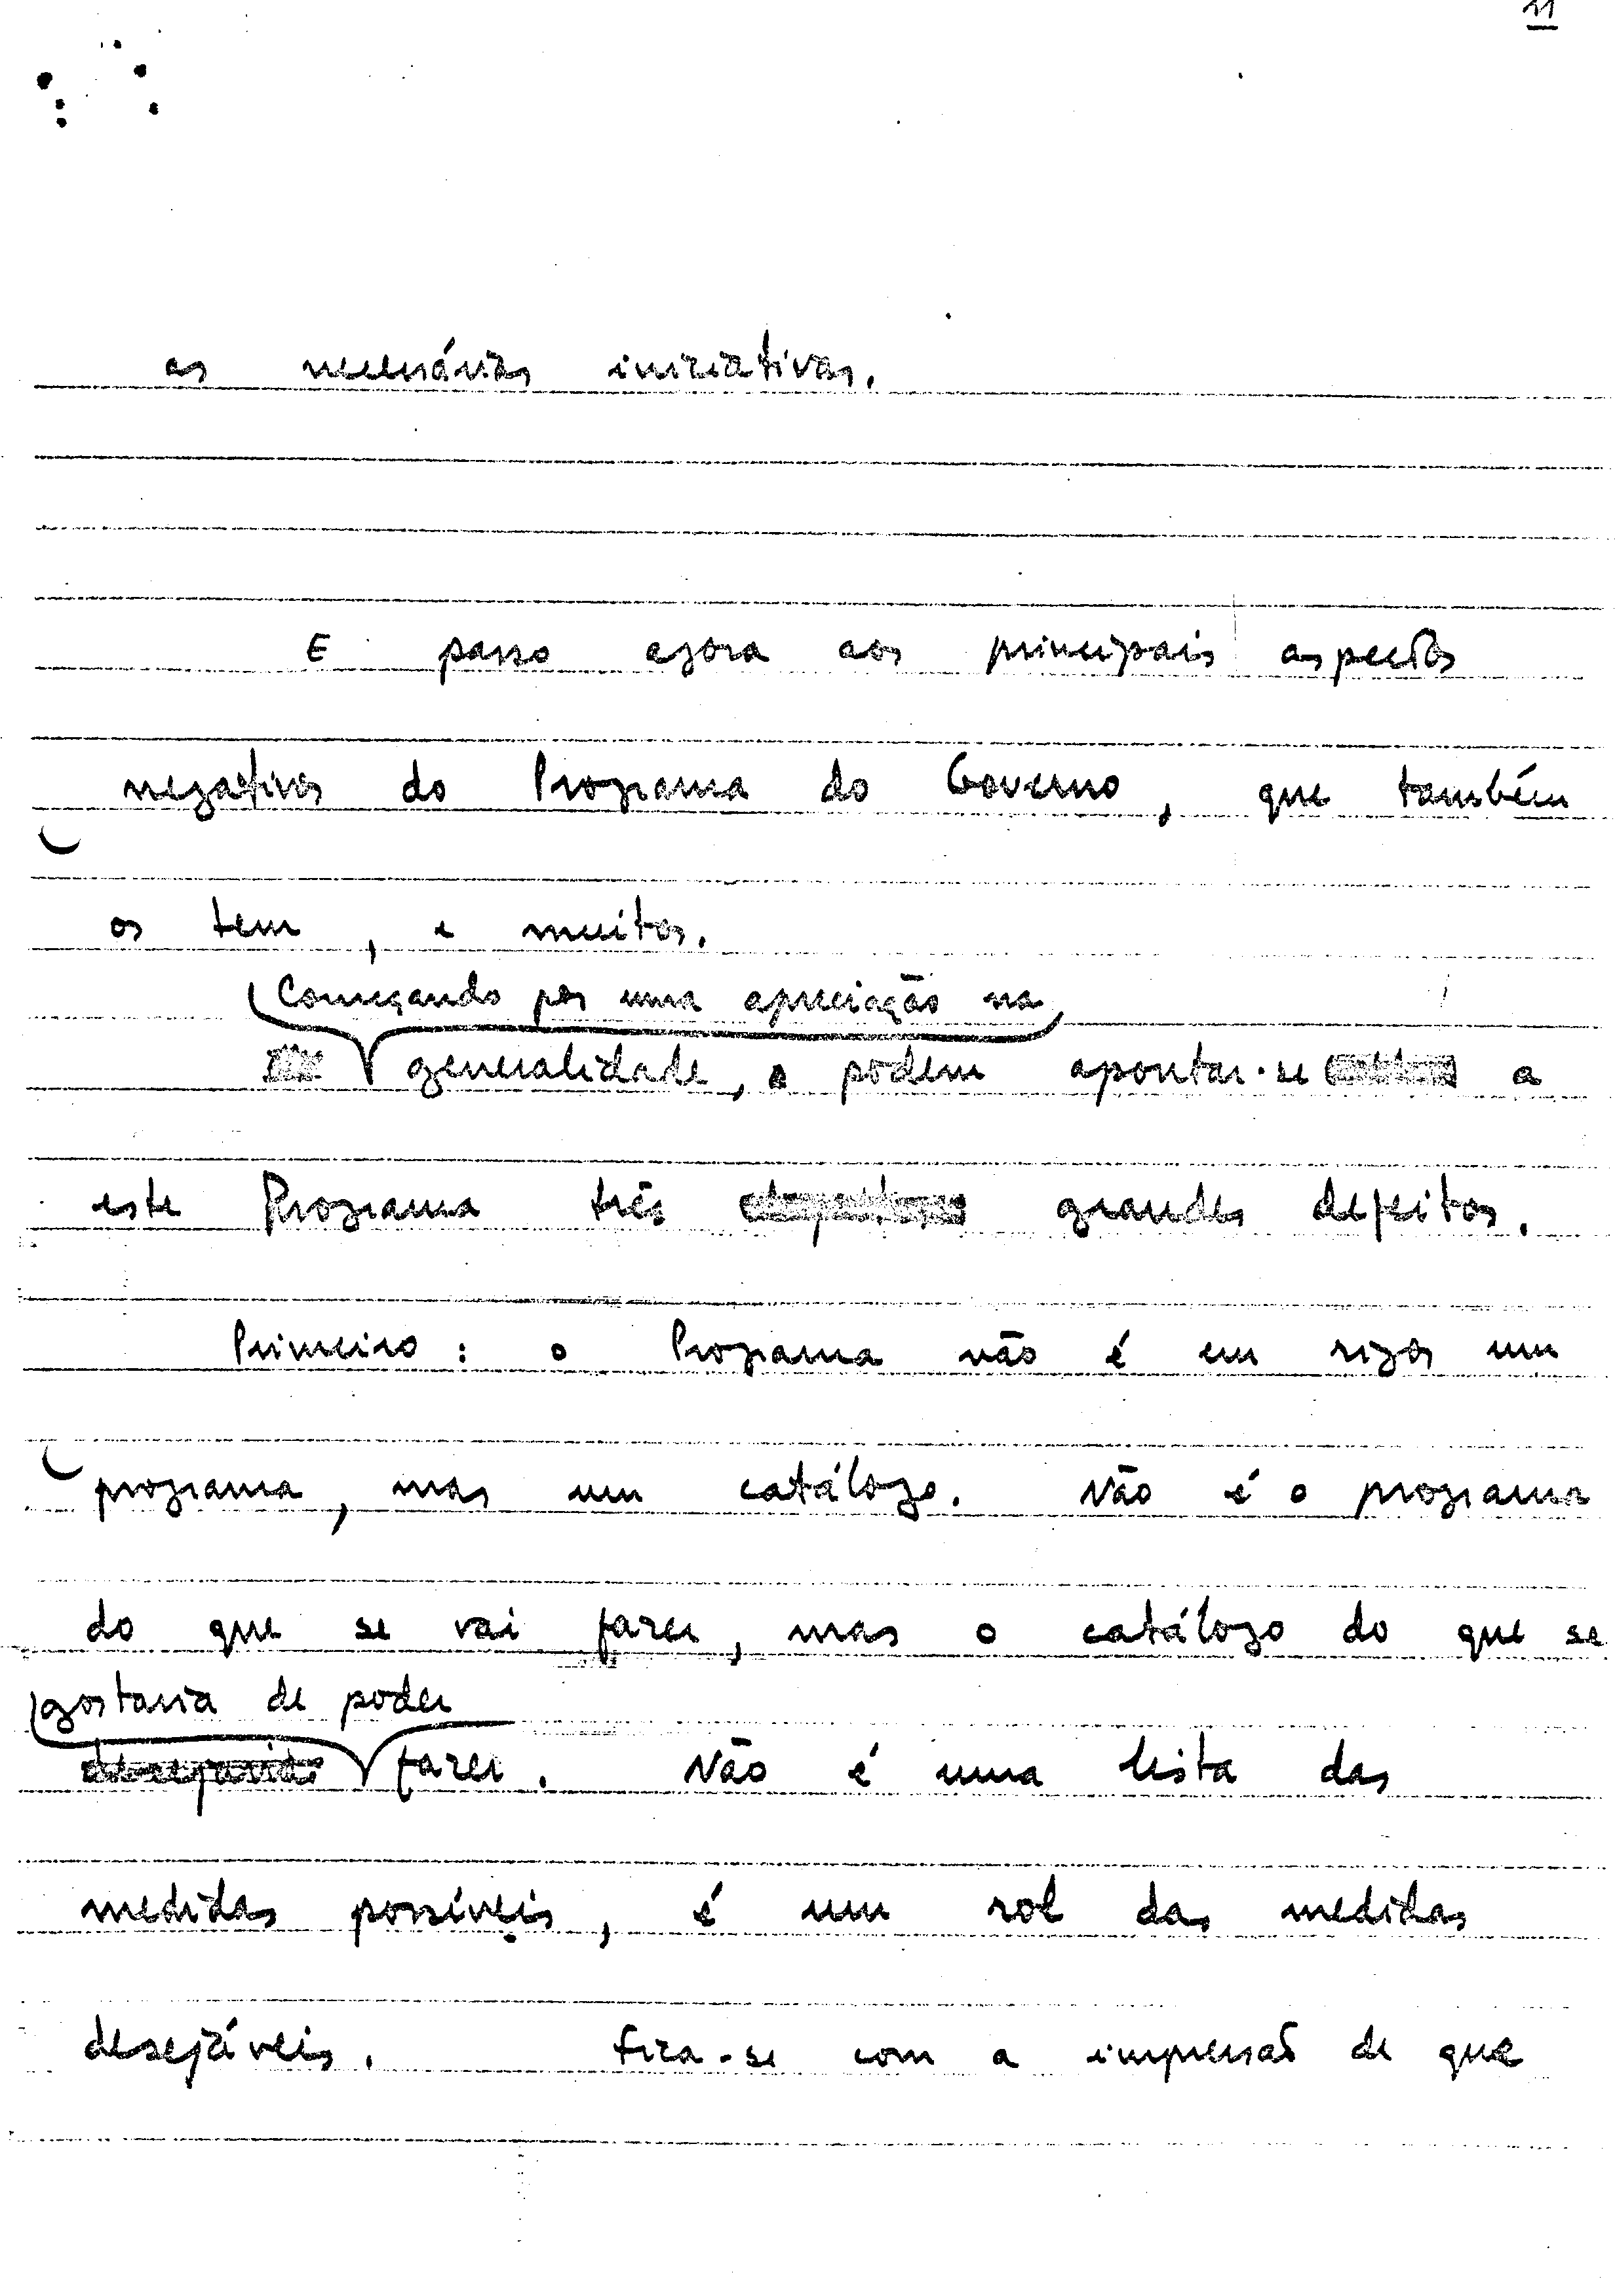 11
as necessárias iniciativas.
E passo agora aos principais aspectos
negativos do Programa do Governo, que também
os tem, e muitos.
Começando por uma apreciação na
generalidade, podem apontar-se a
este Programa três grandes defeitos.
Primeiro: o Programa não é em rigor um
programa, mas um catálogo. Não é o programa
do que se vai fazer, mas o catálogo do que se
gostaria de poder
fazer. Não é uma lista das
medidas possíveis, é um rol das medidas
desejáveis. Fica-se com a impressão de que